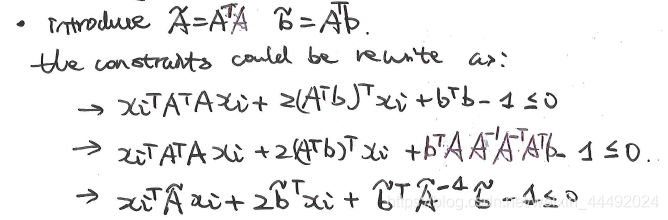 • introduce Ã=AᵀA b̃=Aᵀb.
the constraits could be rewrite as:
→ xiᵀAᵀAxi + 2(Aᵀb)ᵀxi + bᵀb - 1 ≤ 0
→ xiᵀAᵀAxi + 2(Aᵀb)ᵀxi + bᵀA A⁻¹A⁻ᵀAᵀb - 1 ≤ 0.
→ xiᵀÃxi + 2b̃ᵀxi + b̃ᵀÃ⁻¹b̃ - 1 ≤ 0
44492024